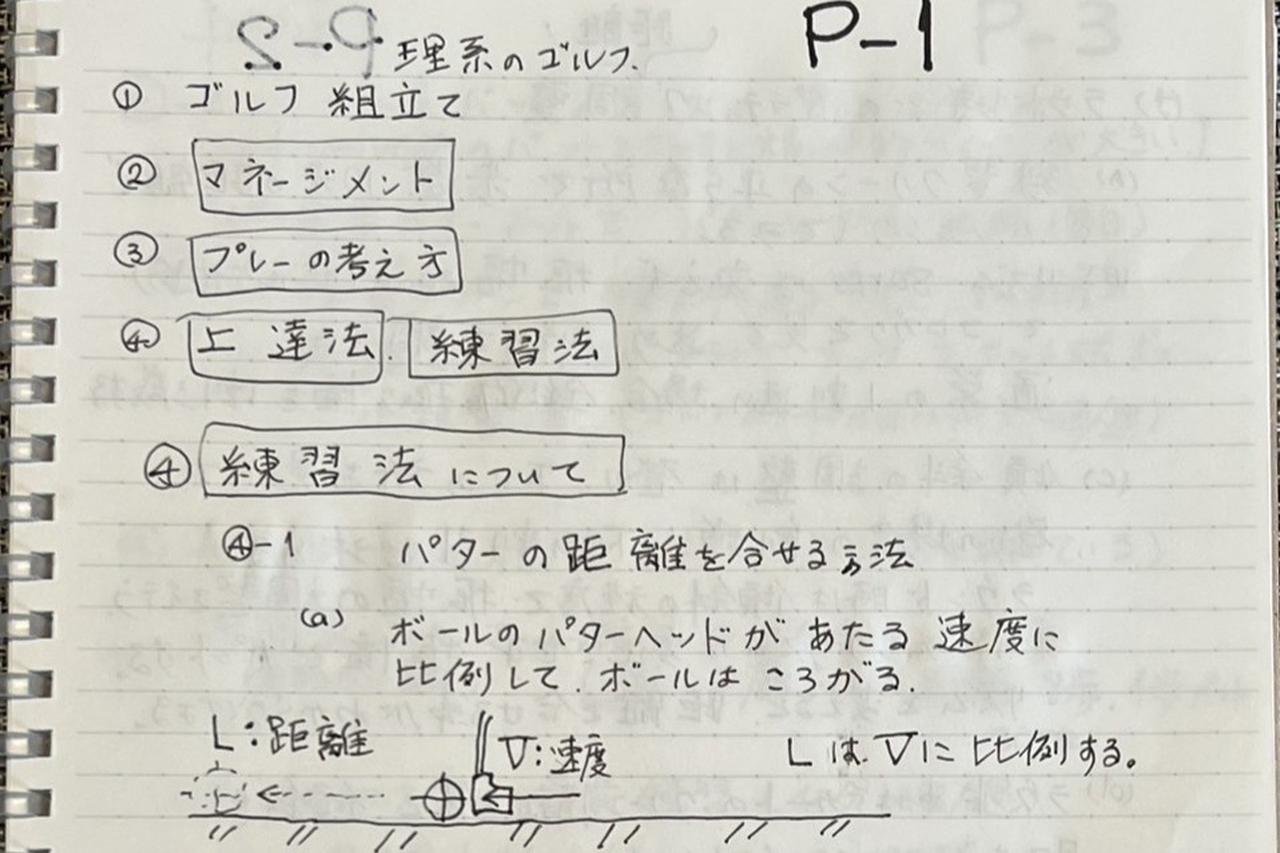 P-1
理系のゴルフ.
① ゴルフ 組立て
② マネージメント
③ プレーの考え方
④ 上達法. 練習法
④ 練習法について
④-1 パターの距離を合せる方法
(a) ボールのパターヘッドがあたる速度に
比例して.ボールはころがる.
L:距離 V:速度 LはVに比例する。